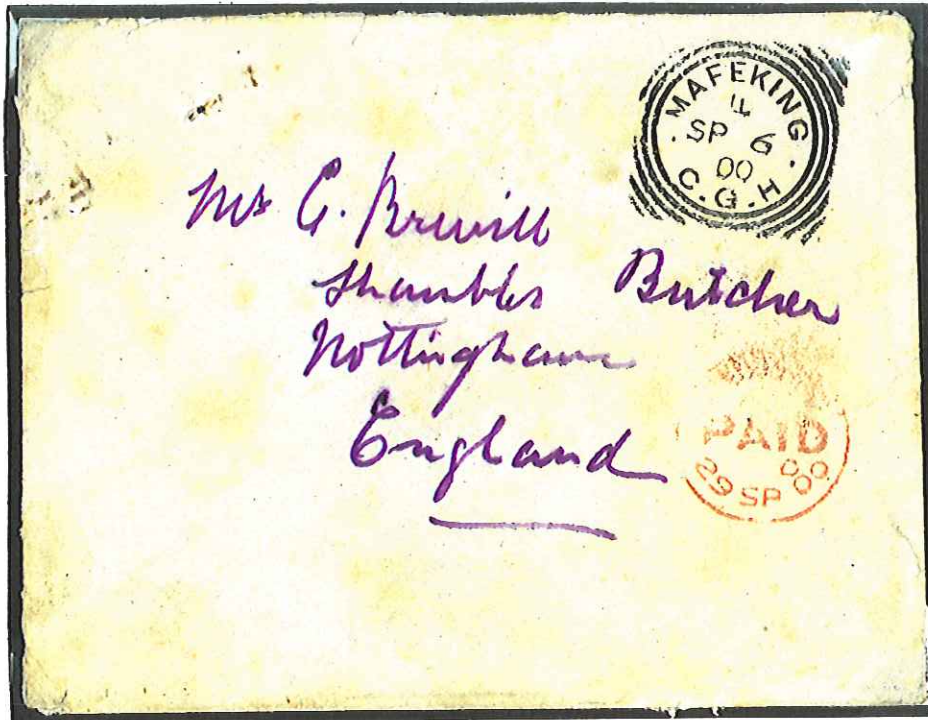 MAFEKING
4
SP 6
00
C.G.H
Mr C. Brewill
Shambles Butcher
Nottingham
England
PAID
29 SP 00